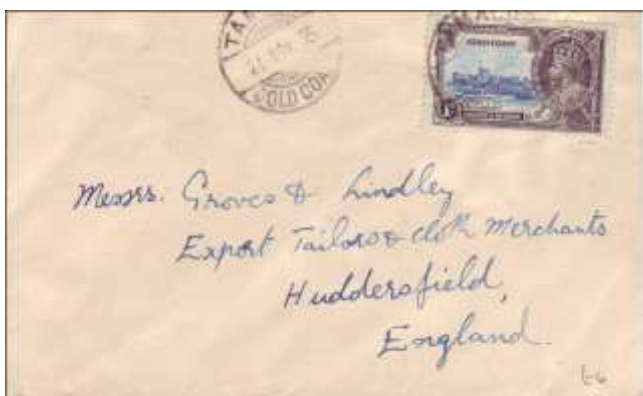 GOLD COA
GOLD COAST
Messrs. Groves & Lindley
Export Tailors & Cloth Merchants
Huddersfield,
England.
£6